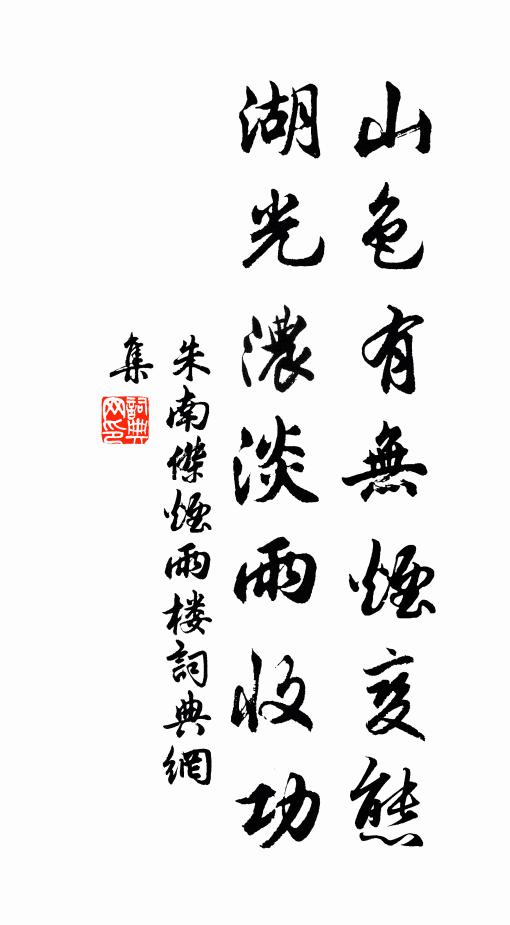 山色有無煙變態
湖光濃淡雨收功
朱南傑煙雨楼詞典網
集
詞典网印